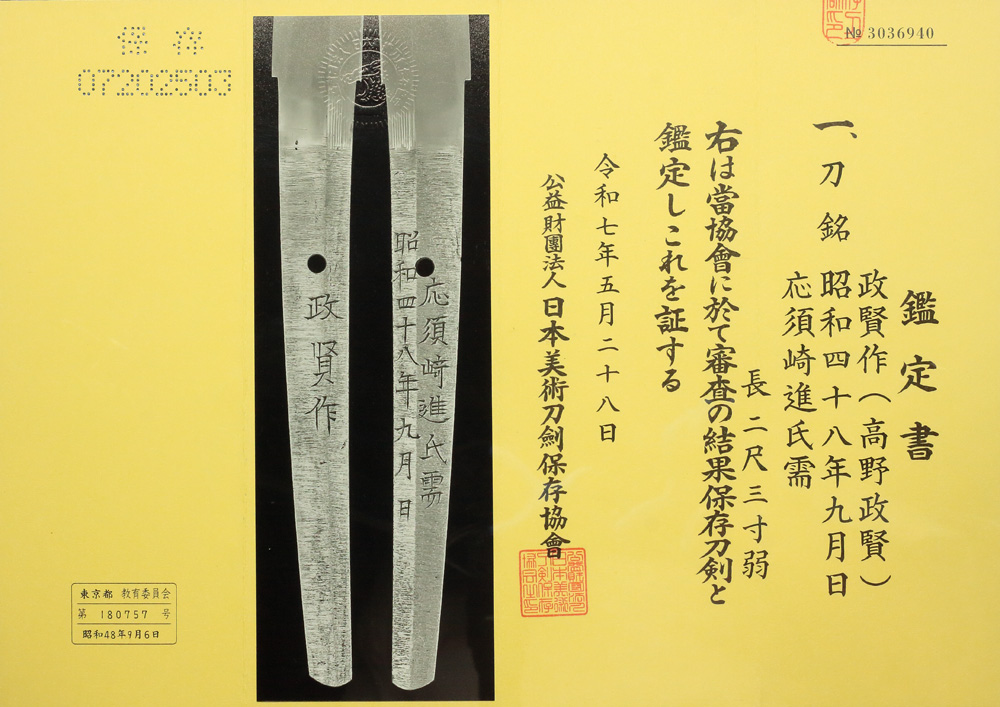 № 3036940
鑑定書
一、刀 銘 政賢作(高野政賢)
昭和四十八年九月日
応須崎進氏需
長二尺三寸弱
右は當協會に於て審査の結果保存刀剣と
鑑定しこれを証する
令和七年五月二十八日
公益財團法人日本美術刀劍保存協會
応須崎進氏需
昭和四十八年九月日
政賢作
保存
07202503
東京都 教育委員会
第 180757 号
昭和48年9月6日